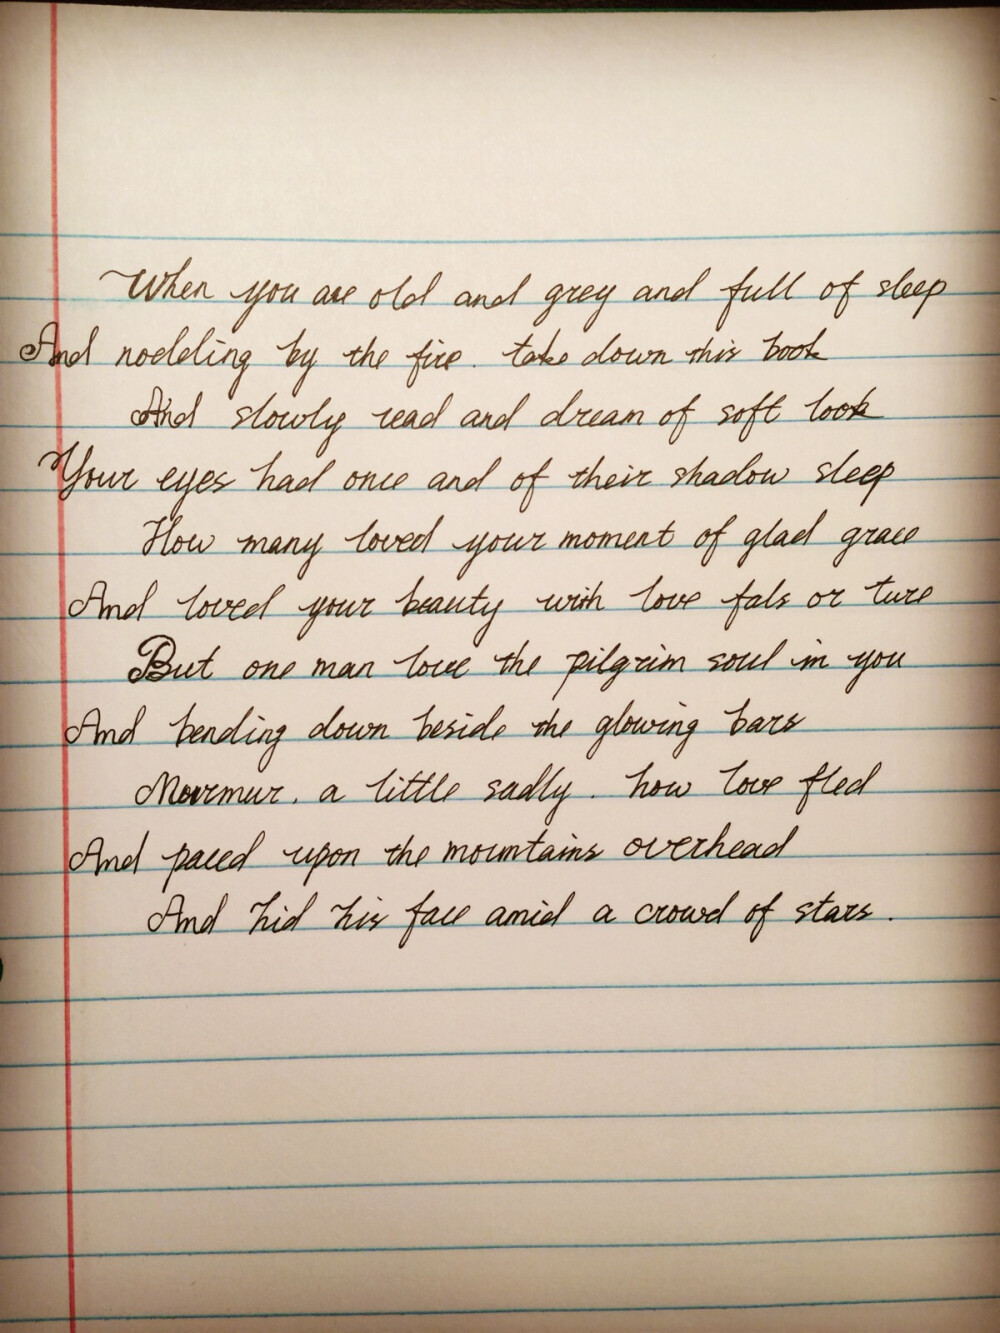 When you are old and grey and full of sleep
And nodding by the fire. take down this book
And slowly read and dream of soft look
Your eyes had once and of their shadow sleep
How many loved your moment of glad grace
And loved your beauty with love fals or ture
But one man love the pilgrim soul in you
And bending down beside the glowing bars
Mourmur. a little sadly. how love fled
And paced upon the mountains overhead
And hid his face amid a crowd of stars.